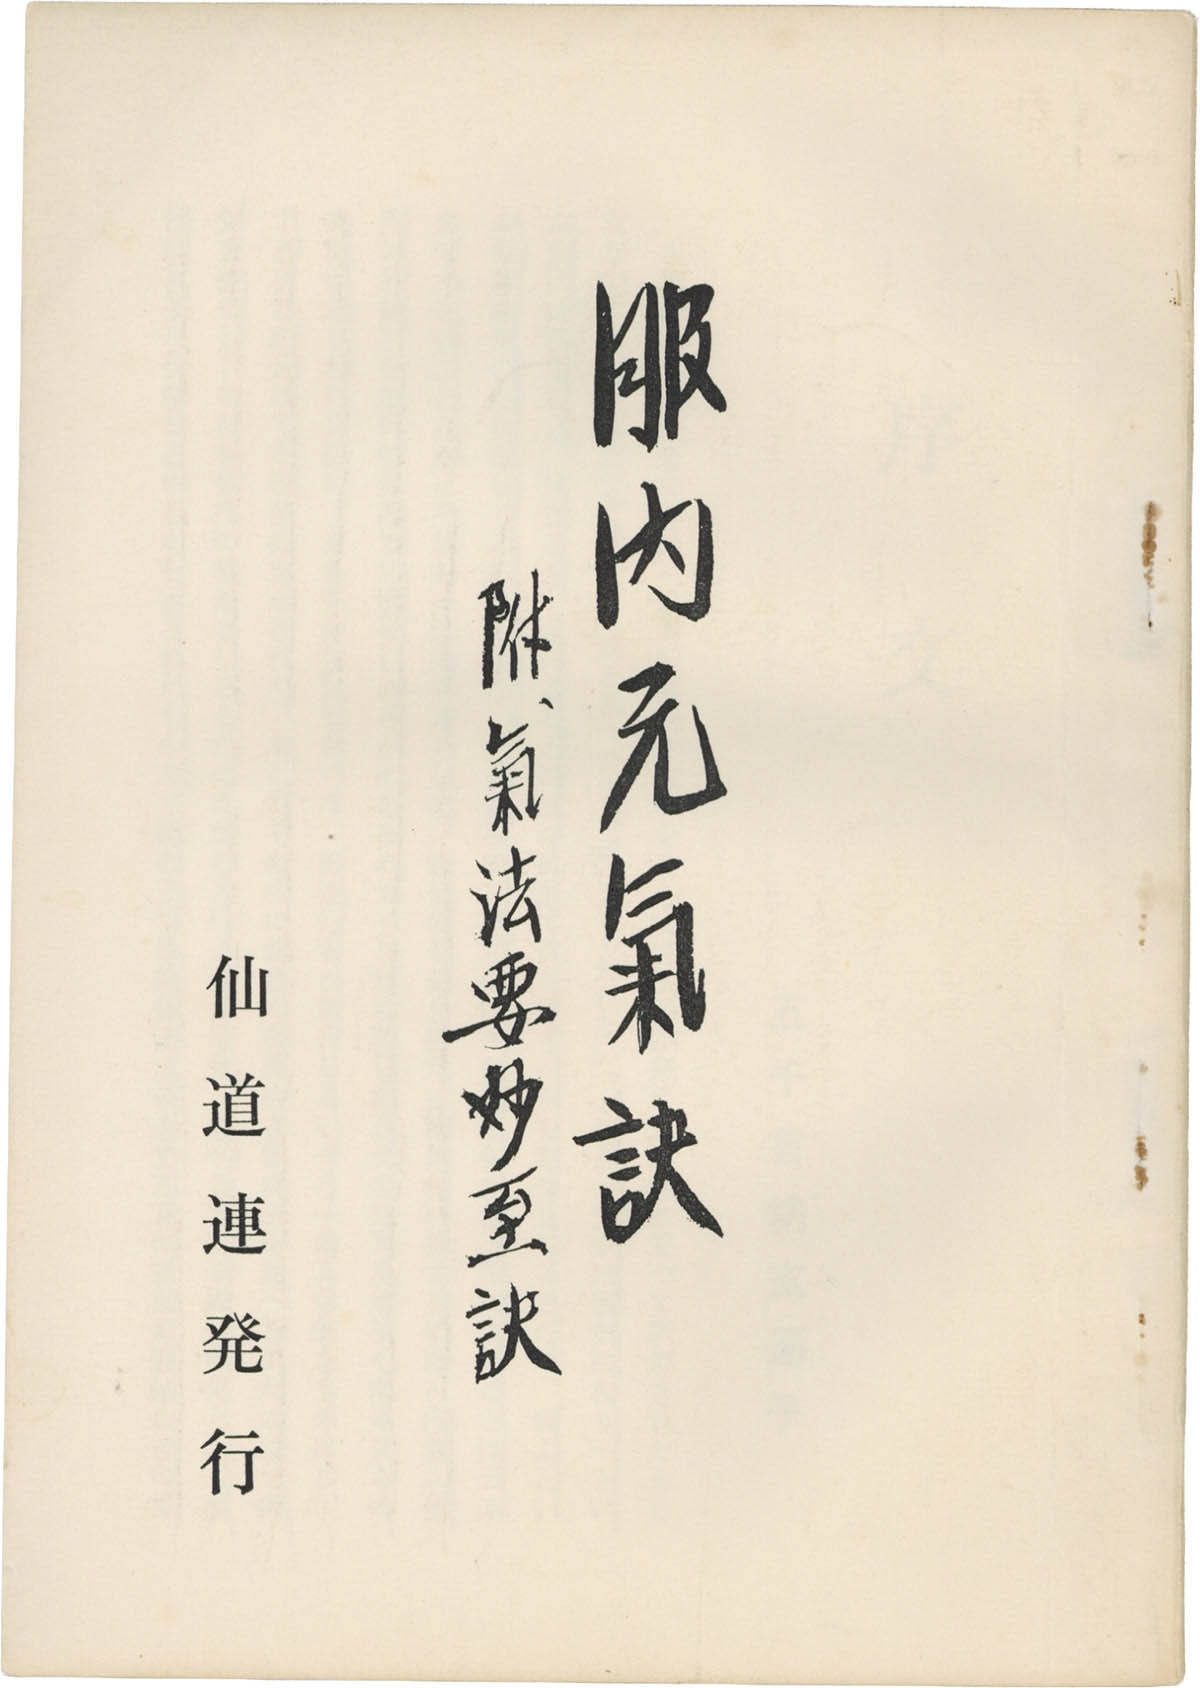 服内元氣訣
附、氣法要妙至訣
仙道連発行